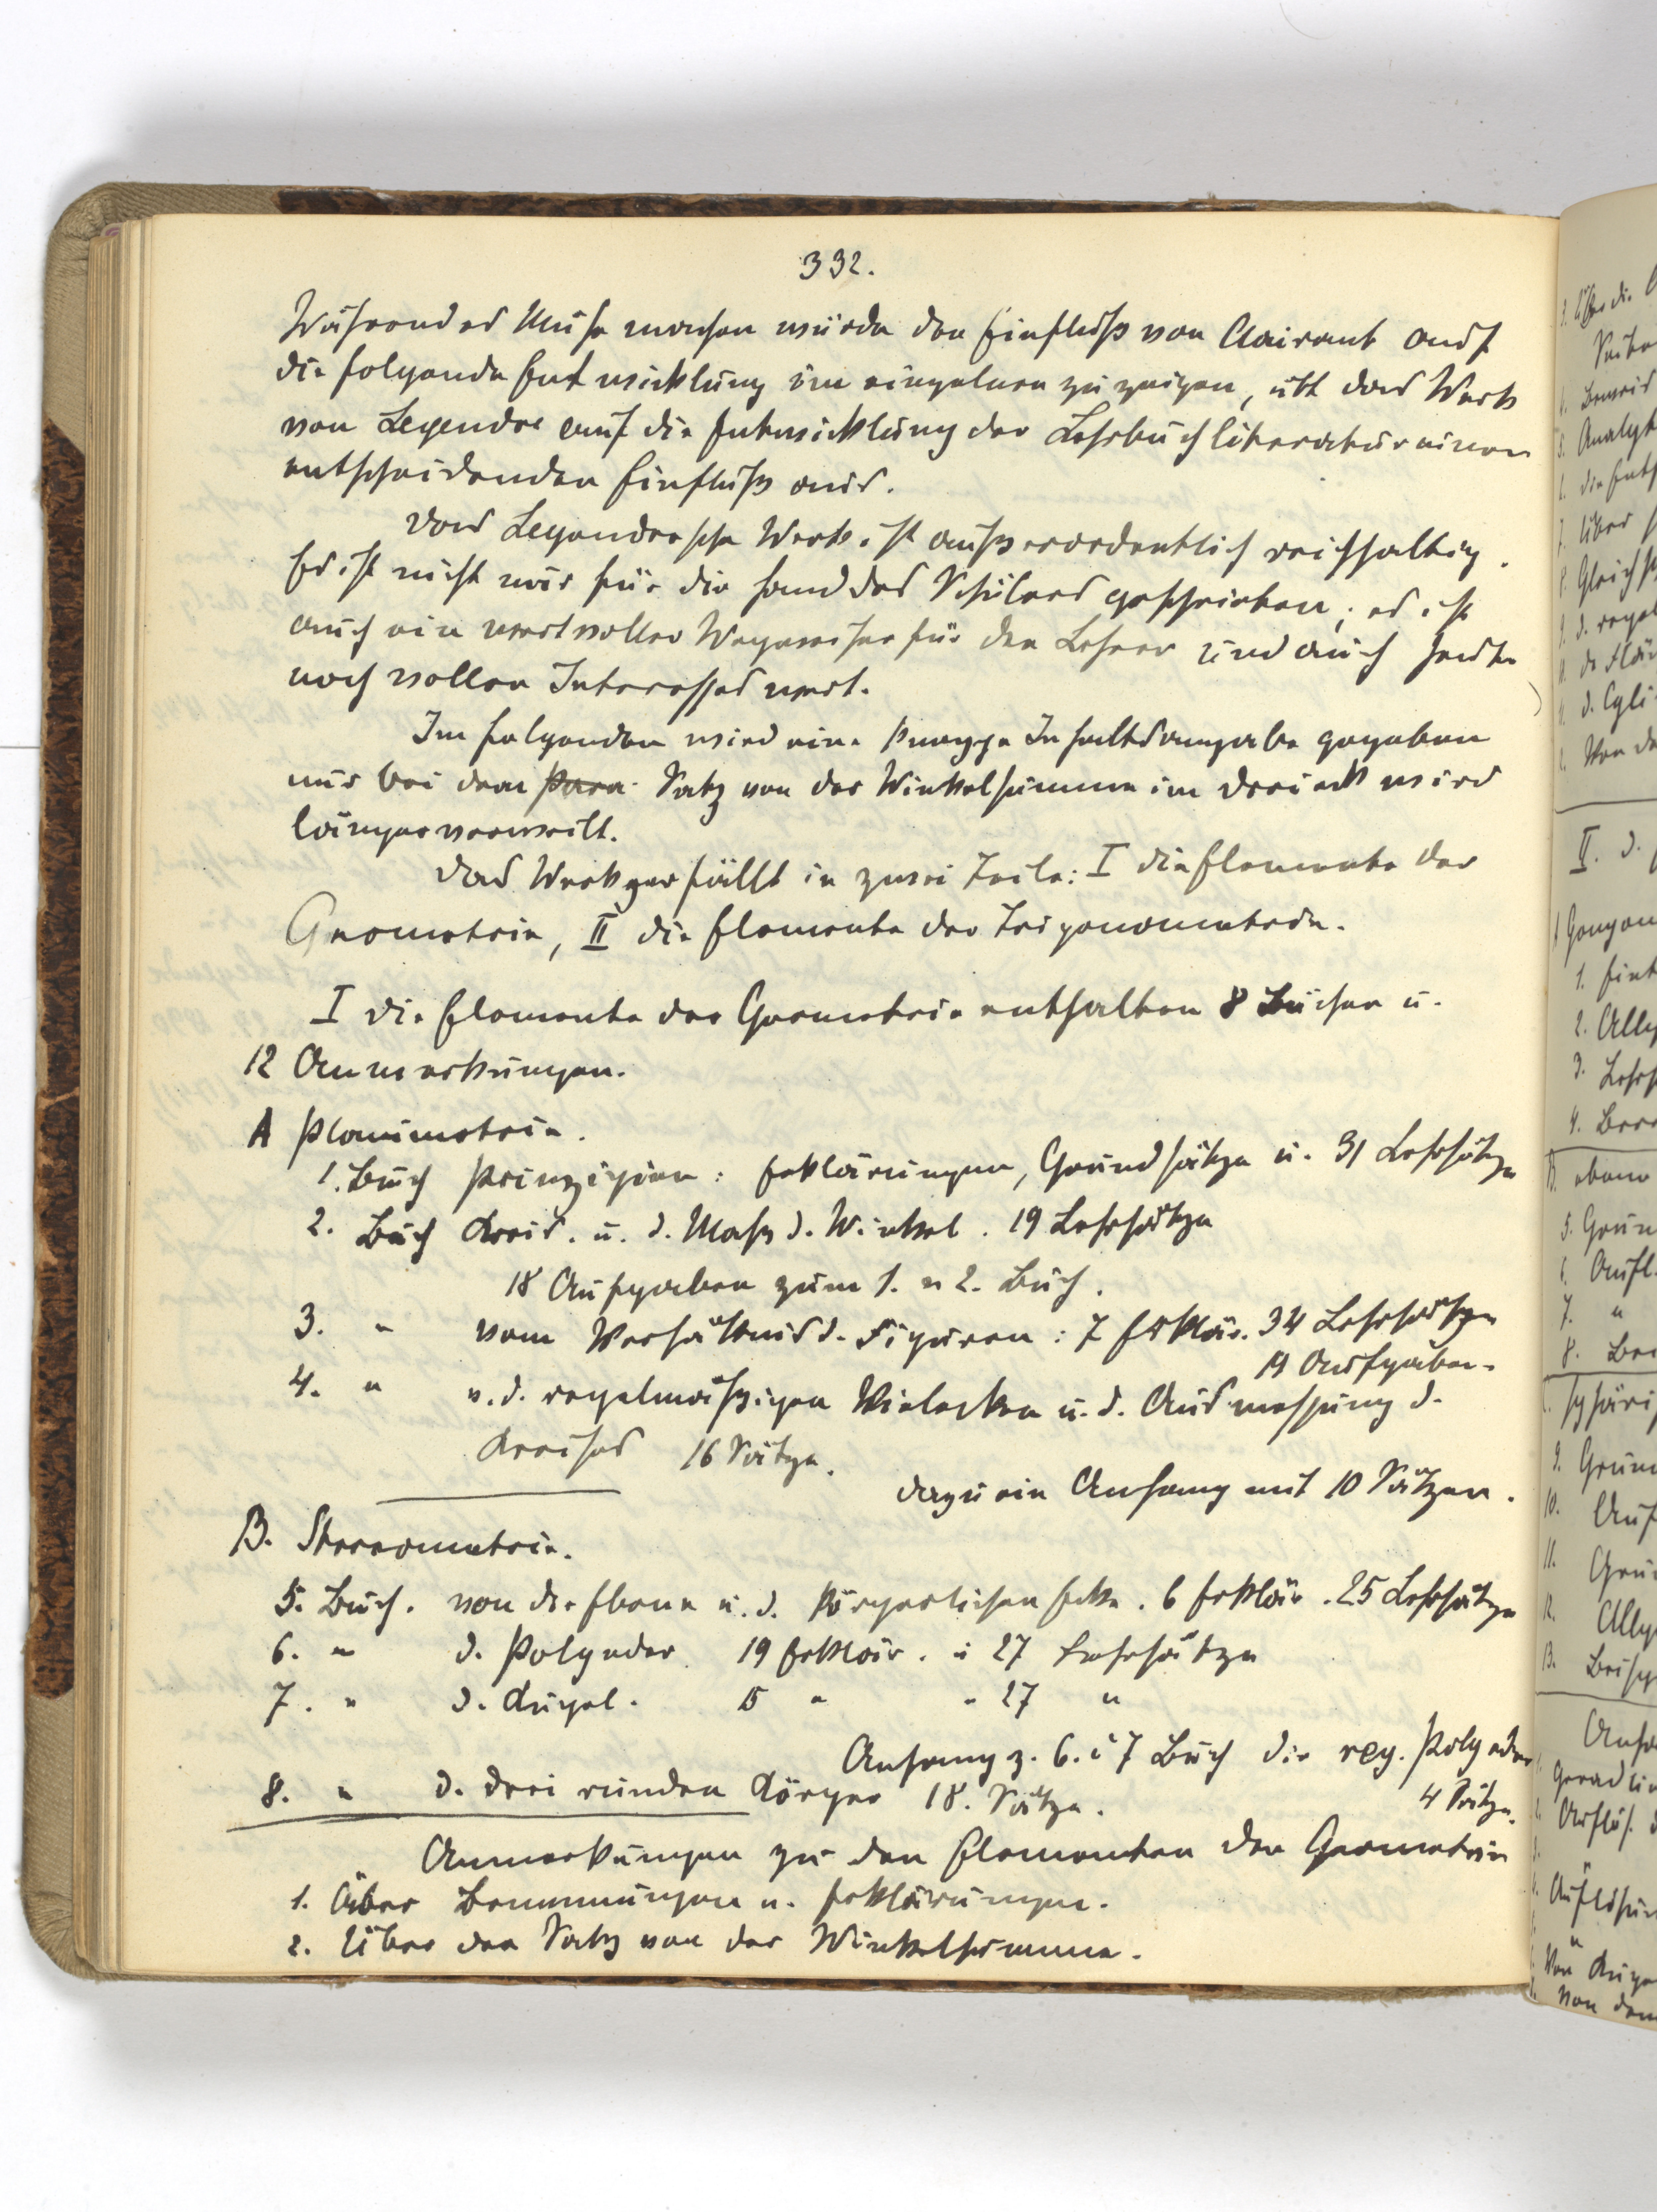 332.
Während es Mühe machen würde den Einfluß von Clairaut auf
die folgende Entwicklung im einzelnen zu zeigen, übt das Werk
von Legendre auf die Entwicklung der Lehrbuchliteratur einen
entscheidenden Einfluß aus.
Das Legendresche Werk ist außerordentlich reichhaltig.
Es ist nicht nur für die Hand des Schülers geschrieben; es ist
auch ein wertvoller Wegweiser für den Lehrer und auch heute
noch vollen Interesses wert.
Im folgenden wird eine knappe Inhaltsangabe gegeben
nur bei dem Para- Satz von der Winkelsumme im Dreieck wird
länger verweilt.
Das Werk zerfällt in zwei Teile: I die Elemente der
Geometrie, II die Elemente der Trigonometrie.
I die Elemente der Geometrie enthalten 8 Bücher u.
12 Anmerkungen.
A Planimetrie.
1. Buch Prinzipien: Erklärungen, Grundsätze u. 31 Lehrsätze
2. Buch Kreis. u. d. Maß d. Winkel. 19 Lehrsätze
18 Aufgaben zum 1. u 2. Buch.
3. " vom Verhältnis d. Figuren: 7 Erklär. 34 Lehrsätze
Aufgaben.
4. " v. d. regelmäßigen Vielecken u. d. Ausmessung d.
Kreises 16 Sätze.
dazu ein Anhang mit 10 Sätzen.
B. Stereometrie.
5. Buch. von der Ebene u. d. körperlichen Ecke. 6 Erklär. 25 Lehrsätze
6. " d. Polyeder 19 Erklär. u 27 Lehrsätze
7. " d. Kugel. 15 " " 27 "
Anhang z. 6. u 7 Buch die reg. Polyeder
4 Sätze.
8. " d. drei runden Körper 18. Sätze.
Anmerkungen zu den Elementen der Geometrie
1. Über Benennungen u. Erklärungen.
2. Über den Satz von der Winkelsumme.